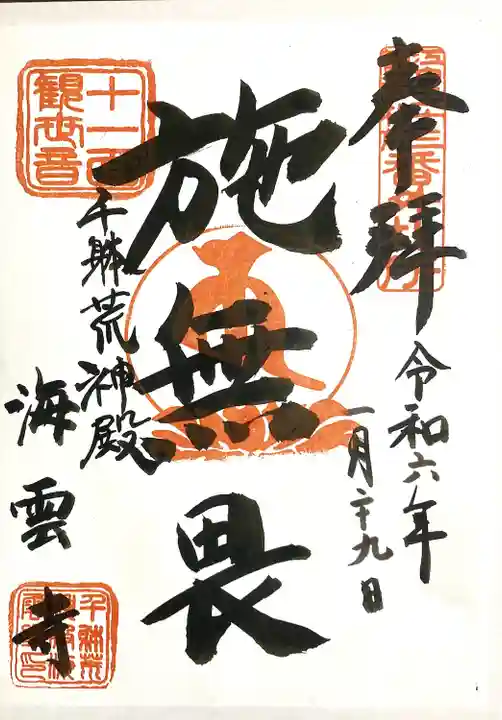 奉拝
令和六年
一月二十九日
施無畏
十一面
観世音
千躰荒神殿
海雲寺
千躰荒